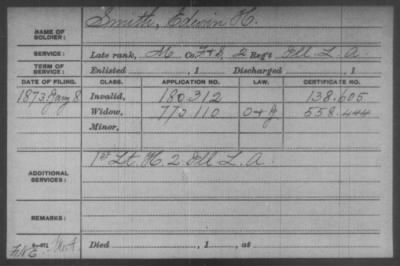 NAME OF SOLDIER: Smith, Edwin H.
SERVICE: Late rank, Co. F & D, 2 Reg't Ill L. A.
TERM OF SERVICE: Enlisted , 1 Discharged , 1
DATE OF FILING. CLASS. APPLICATION NO. LAW. CERTIFICATE NO.
1873 Jany 8 Invalid, 180.312 138.605
Widow, 773110 558.444
Minor,
ADDITIONAL SERVICES: 1st Lt. H. 2 Ill L. A.
REMARKS:
Died , 1 , at